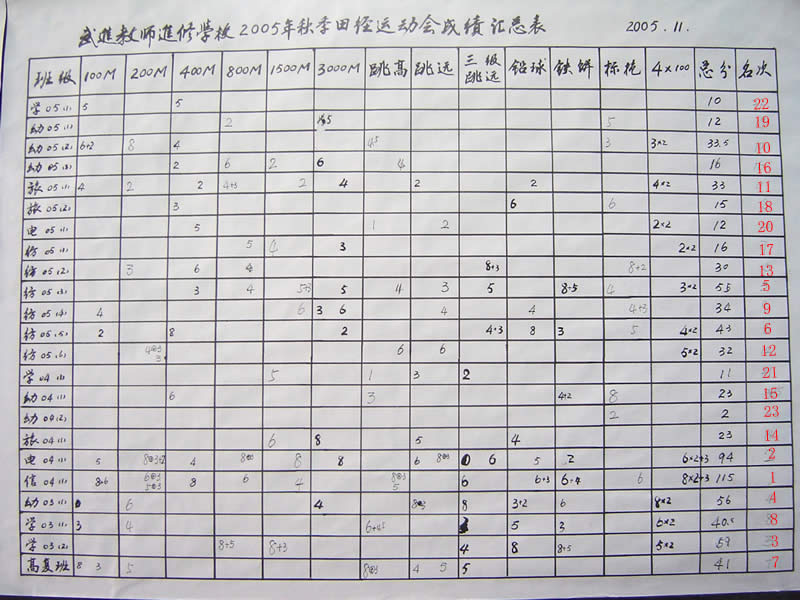 武進教师進修学校2005年秋季田径运动会成绩汇总表 2005.11.
班级 100M 200M 400M 800M 1500M 3000M 跳高 跳远 三级跳远 铅球 铁饼 标枪 4×100 总分 名次
学05(1) 5 5 10 22
幼05(1) 2 5 12 19
幼05(2) 6+2 8 4 4.5 3 3×2 33.5 10
幼05(3) 2 6 2 6 4 16 16
旅05(1) 4 2 2 4+3 2 4 2 2 4×2 33 11
旅05(2) 3 6 6 15 18
电05(1) 5 1 2 2×2 12 20
纺05(1) 5 4 3 2×2 16 17
纺05(2) 3 6 4 8+3 8+2 30 13
纺05(3) 3 4 5+3 5 4 3 5 8+5 4 3×2 55 5
纺05(4) 4 6 3 6 4 4 4+3 34 9
纺05(5) 2 8 2 4+3 8 3 5 4×2 43 6
纺05(6) 6 6 5×2 32 12
学04(1) 5 1 3 2 11 21
幼04(1) 6 3 4+2 8 23 15
幼04(2) 2 2 23
旅04(1) 6 8 5 4 23 14
电04(1) 5 4 8 8 6 6 5 2 6×2+3 94 2
信04(1) 8+6 8 6 4 5 6 6+3 6+4 6 8×2+3 115 1
幼03(1) 6 4 8 3+2 6 8×2 56 4
学03(1) 3 4 5 3 6×2 40.5 8
学03(2) 8+5 8+3 4 8 8+5 5×2 59 3
高复班 8 3 5 4 5 5 41 7